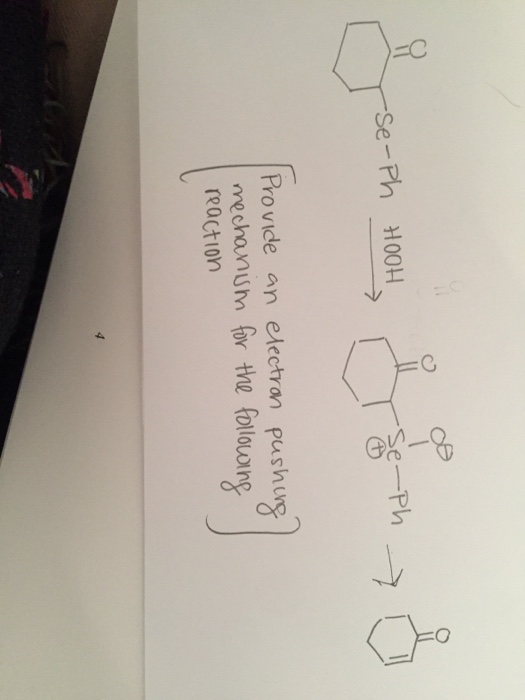 O
Se-Ph
HOOH
O
O⊖
Se-Ph
⊕
O
Provide an electron pushing
mechanism for the following
reaction
4